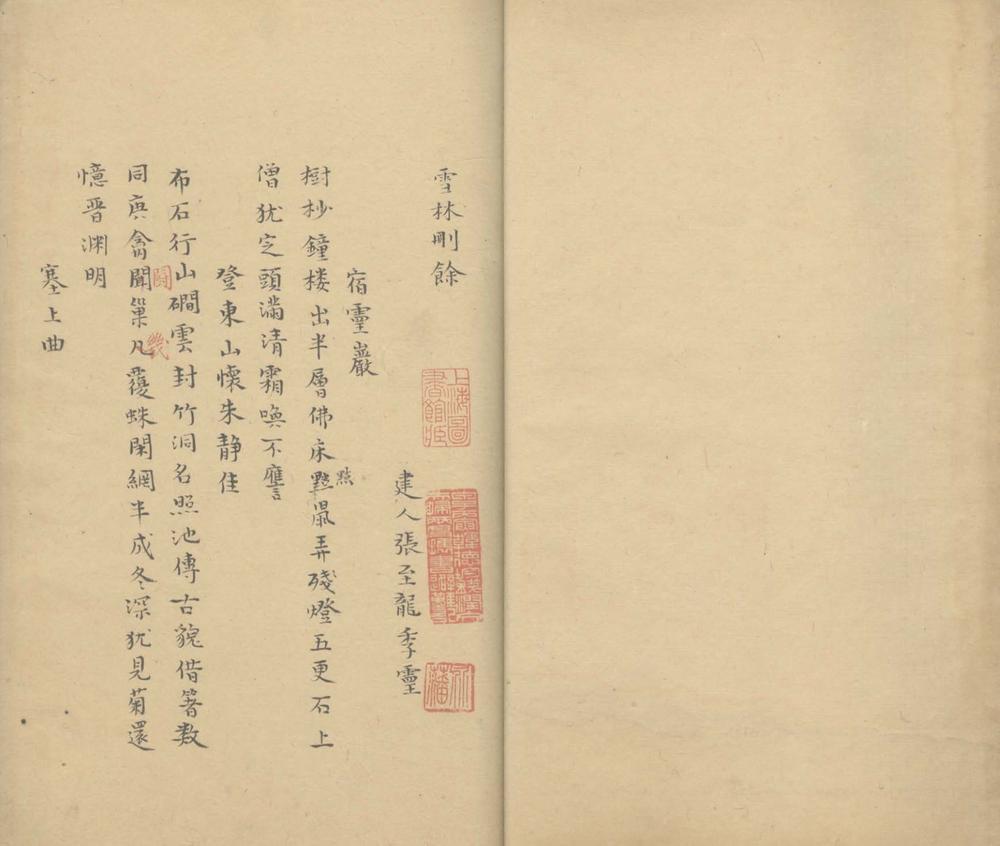 雪林刪餘
上海圖書館藏
建人張至龍季靈
宿靈巖
樹杪鐘楼出半層佛床黠鼠弄殘燈五更石上
僧犹定頭滿清霜喚不譍
登東山懷朱静佳
布石行山磵雲封竹洞名照池傳古貌借箸数
鬪
幾
同庚禽聞巢凡覆蛛閑網半成冬深犹見菊還
憶晋渊明
塞上曲